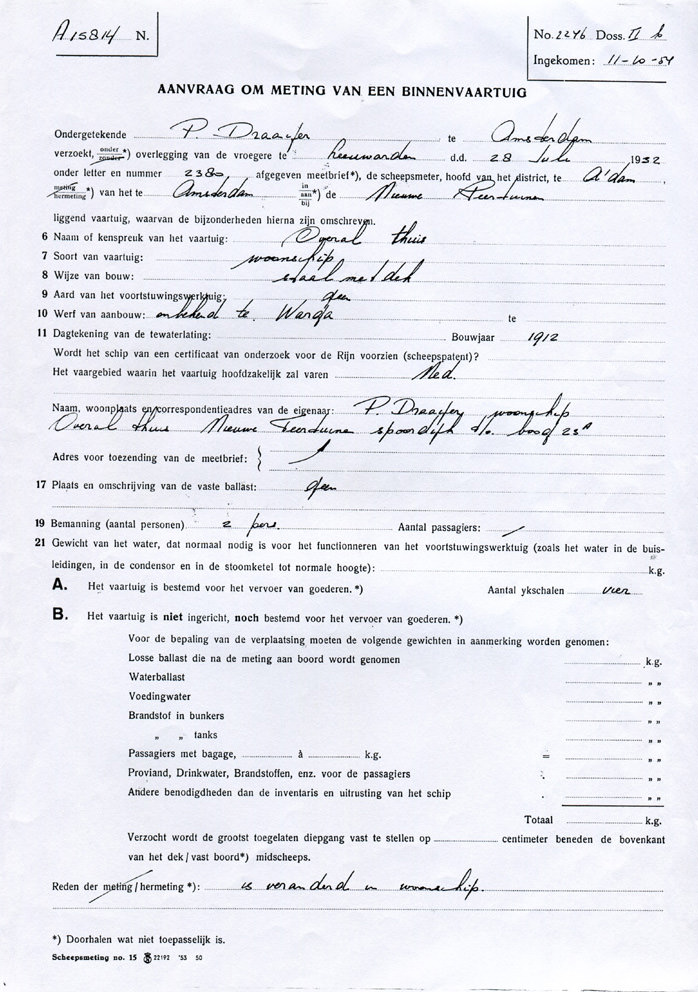 A15814 N.
No. 2246 Doss. II b
Ingekomen: 11-10-54
AANVRAAG OM METING VAN EEN BINNENVAARTUIG
Ondergetekende P. Draayer te Amsterdam
verzoekt, onder zonder *) overlegging van de vroegere te Leeuwarden d.d. 28 Juli 1932
onder letter en nummer 2380, afgegeven meetbrief*), de scheepsmeter, hoofd van het district, te A'dam,
meting hermeting *) van het te Amsterdam in aan bij *) de Nieuwe Teertuinen
liggend vaartuig, waarvan de bijzonderheden hierna zijn omschreven.
6 Naam of kenspreuk van het vaartuig: Overal thuis
7 Soort van vaartuig: woonschip
8 Wijze van bouw: staal met dek
9 Aard van het voortstuwingswerktuig: geen
10 Werf van aanbouw: onbekend te Warga te
11 Dagtekening van de tewaterlating: Bouwjaar 1912
Wordt het schip van een certificaat van onderzoek voor de Rijn voorzien (scheepspatent)?
Het vaargebied waarin het vaartuig hoofdzakelijk zal varen Ned.
Naam, woonplaats en/correspondentieadres van de eigenaar: P. Draayer, woonschip
Overal thuis Nieuwe Teertuinen spoordijk t/o. 23A
Adres voor toezending van de meetbrief:
17 Plaats en omschrijving van de vaste ballast: geen
19 Bemanning (aantal personen) 2 pers. Aantal passagiers: /
21 Gewicht van het water, dat normaal nodig is voor het functionneren van het voortstuwingswerktuig (zoals het water in de buis-
leidingen, in de condensor en in de stoomketel tot normale hoogte): k.g.
A. Het vaartuig is bestemd voor het vervoer van goederen. *) Aantal ykschalen vier
B. Het vaartuig is niet ingericht, noch bestemd voor het vervoer van goederen. *)
Voor de bepaling van de verplaatsing moeten de volgende gewichten in aanmerking worden genomen:
Losse ballast die na de meting aan boord wordt genomen k.g.
Waterballast „ „
Voedingwater „ „
Brandstof in bunkers „ „
„ „ tanks „ „
Passagiers met bagage, à k.g. = „ „
Proviand, Drinkwater, Brandstoffen, enz. voor de passagiers „ „
Andere benodigdheden dan de inventaris en uitrusting van het schip „ „
Totaal k.g.
Verzocht wordt de grootst toegelaten diepgang vast te stellen op centimeter beneden de bovenkant
van het dek / vast boord*) midscheeps.
Reden der meting / hermeting *): is veranderd in woonschip.
*) Doorhalen wat niet toepasselijk is.
Scheepsmeting no. 15 22192 '53 50